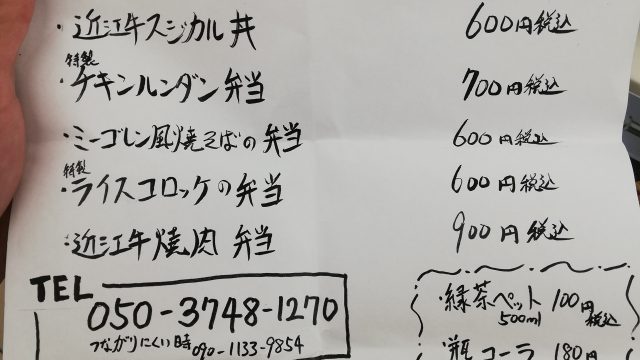 ・近江牛スジカル丼 600円税込
特製
・チキンルンダン弁当 700円税込
・ミーゴレン風焼そばの弁当 600円税込
特製
・ライスコロッケの弁当 600円税込
・近江牛焼肉 弁当 900円税込
TEL
050-3748-1270
つながりにくい時 090-1133-9854
・緑茶ペット 100円税込
500ml
・瓶コーラ 180円